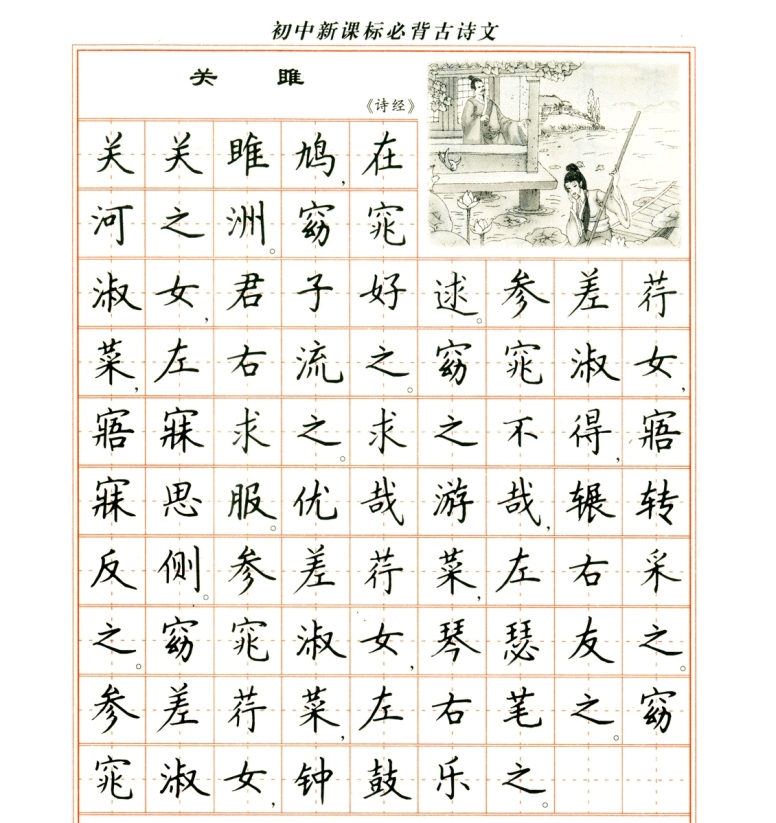 初中新课标必背古诗文
关雎
《诗经》
关关雎鸠,在
河之洲。窈窕
淑女,君子好逑。参差荇
菜,左右流之。窈窕淑女,
寤寐求之。求之不得,寤
寐思服。优哉游哉,辗转
反侧。参差荇菜,左右采
之。窈窕淑女,琴瑟友之。
参差荇菜,左右芼之。窈
窕淑女,钟鼓乐之。